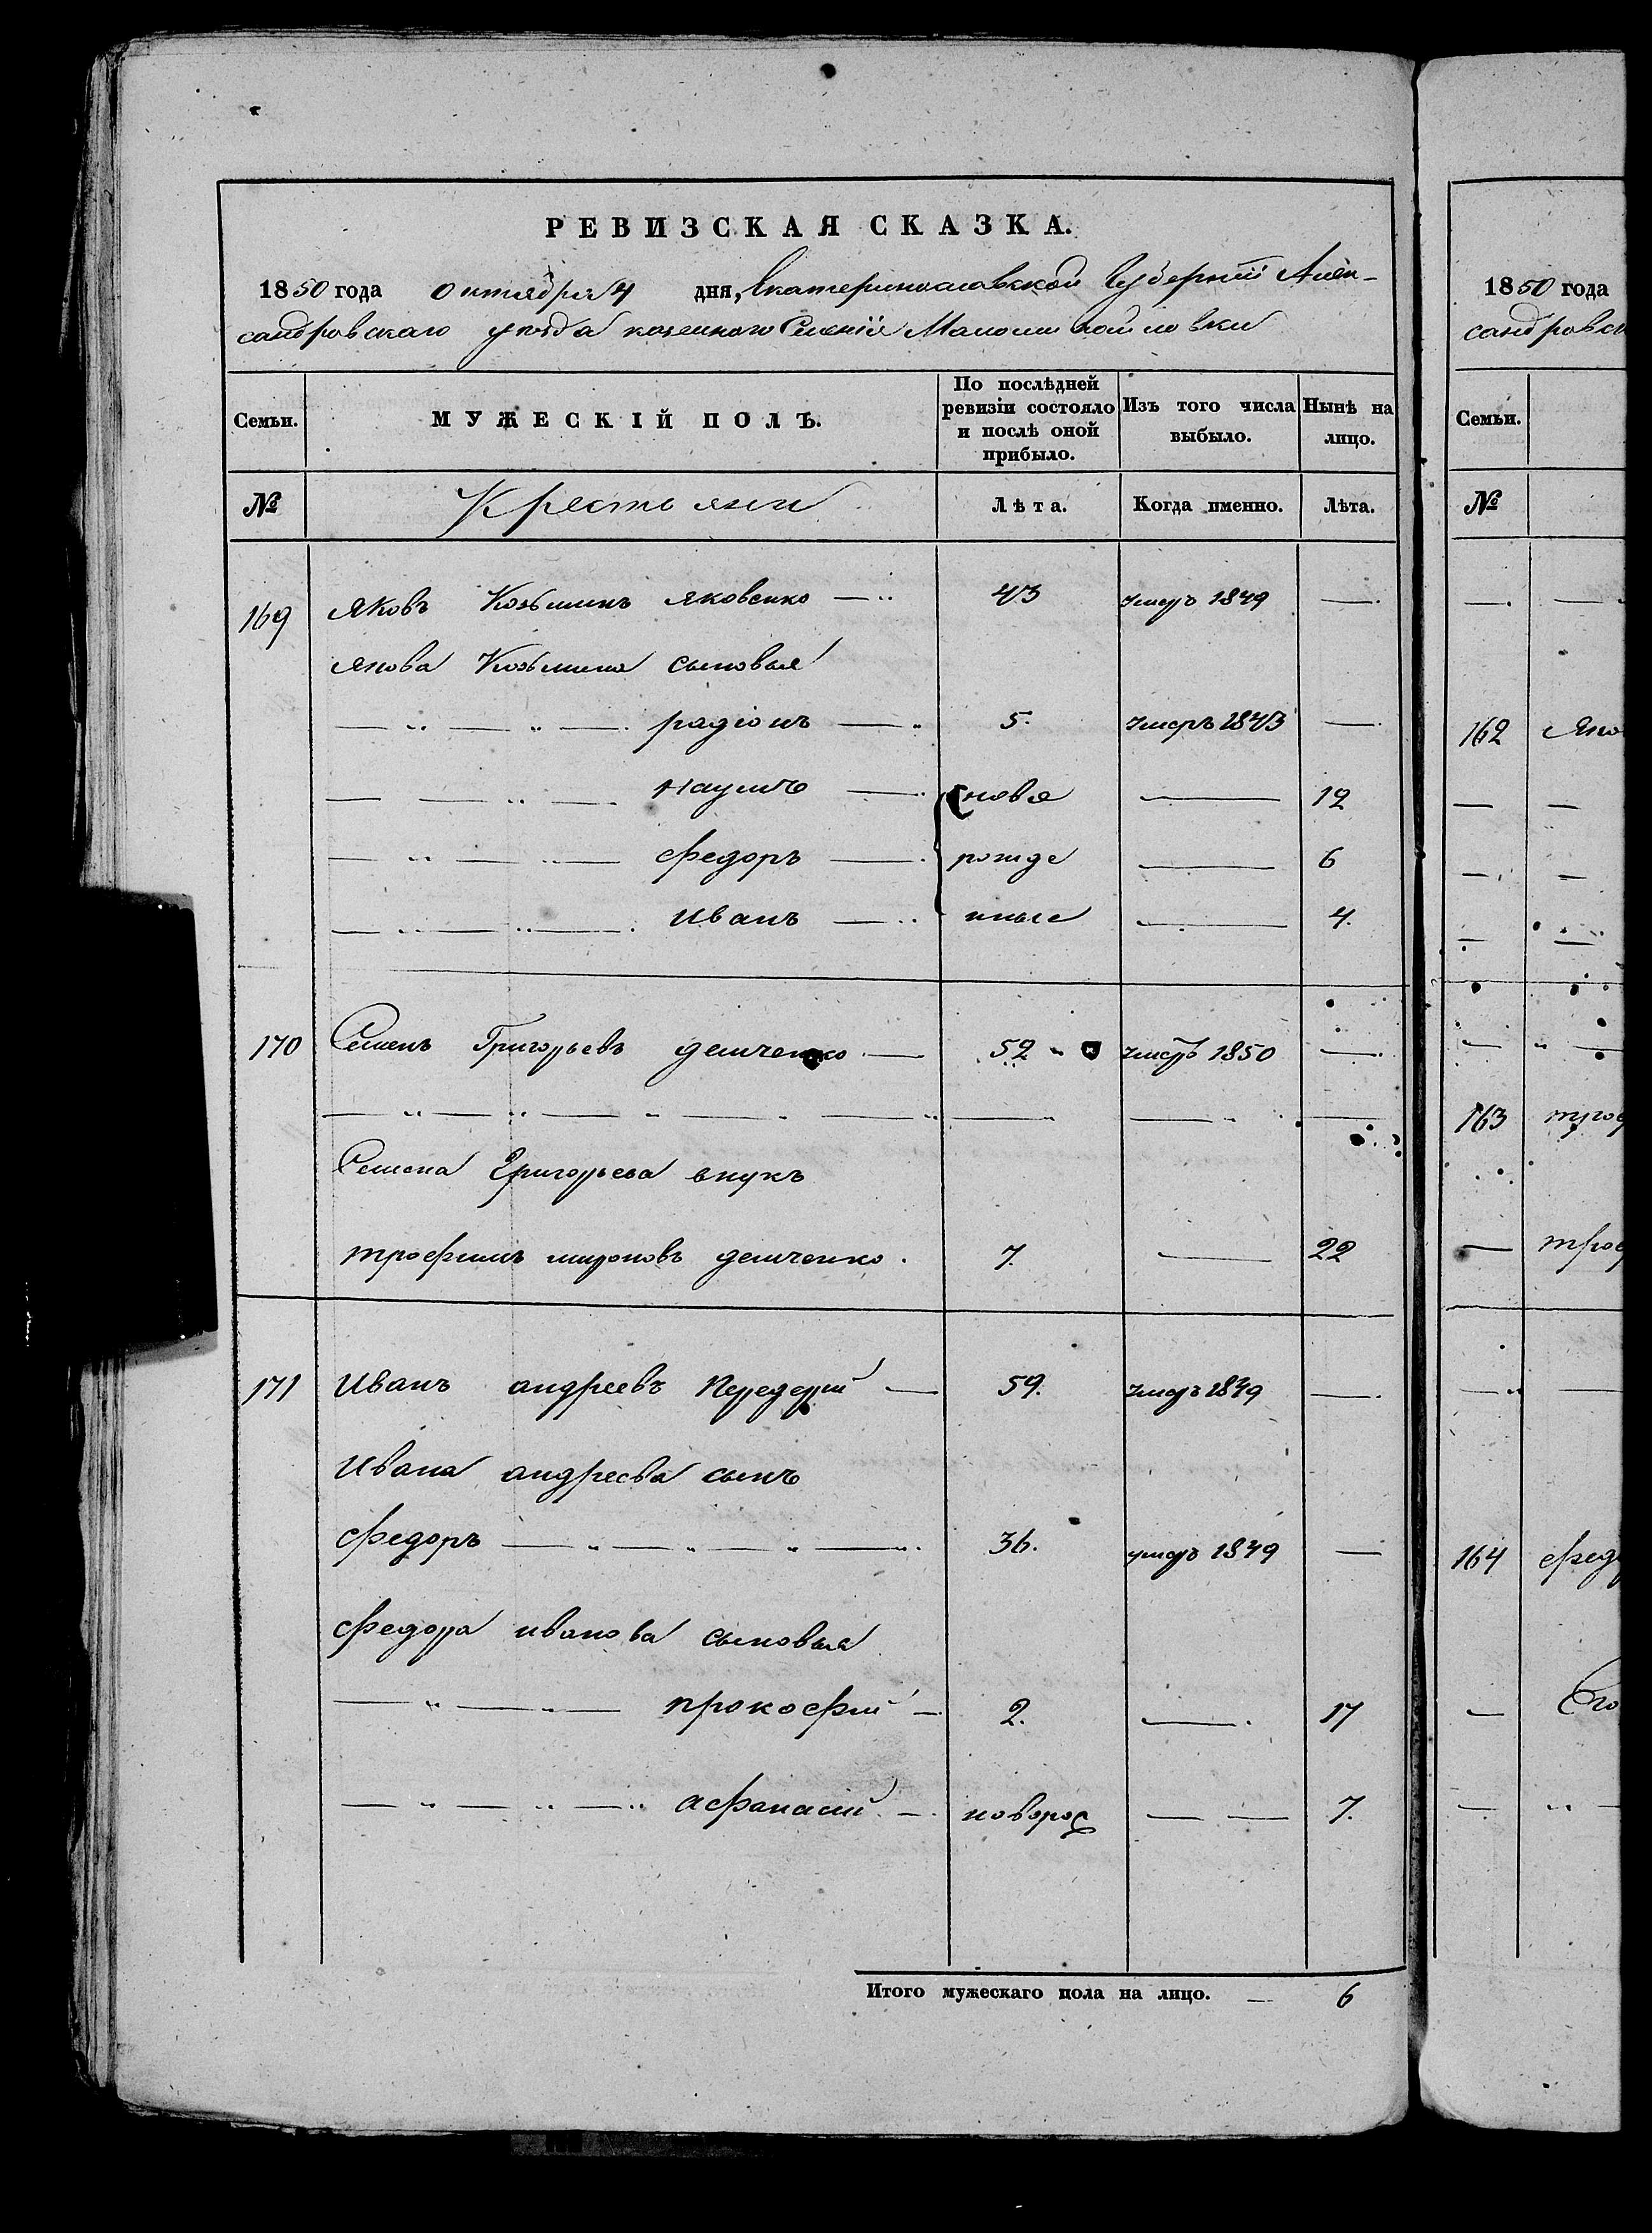 РЕВИЗСКАЯ СКАЗКА.
1850 года октября 4 дня, Екатеринославской Губерніи Алек-
сандровскаго уезда казенного Селенія Маломихайловки
Семьи. МУЖЕСКІЙ ПОЛЪ. По послѣдней ревизіи состояло и послѣ оной прибыло. Изъ того числа выбыло. Нынѣ на лицо.
№ Крестьяни Лѣта. Когда именно. Лѣта.
169 Яковъ Козьминъ Яковенко — 43 умеръ 1849 —
Якова Козьмина сыновья
— „ — „ — радіонъ — 5. умеръ 1843 —
— — „ — Наумъ — новo — 12
— „ — „ — Федоръ — рожде — 6
— „ — „ — Иванъ — нные — 4.
170 Семенъ Григорьевъ демченко — 52 умеръ 1850 —
— „ — „ — „ — „ — „ — — —
Семена Григорьева внукъ
трофимъ мироновъ демченко. 7. — 22
171 Иванъ андреевъ Передерий — 59. умеръ 1849 —
Ивана андреева сынъ
Федоръ — „ — „ — „ — 36. умеръ 1849 —
Федора иванова сыновья
— „ — „ — прокофий — 2. — 17
— „ — „ — афанасий — новорож — — 7.
Итого мужескаго пола на лицо. — 6
1850 года
сандровск
Семьи.
№
— —
162 Яко
— —
— —
— —
— „ —
163 троф
— троф
— „ —
164 Федо
— Его
— „ —